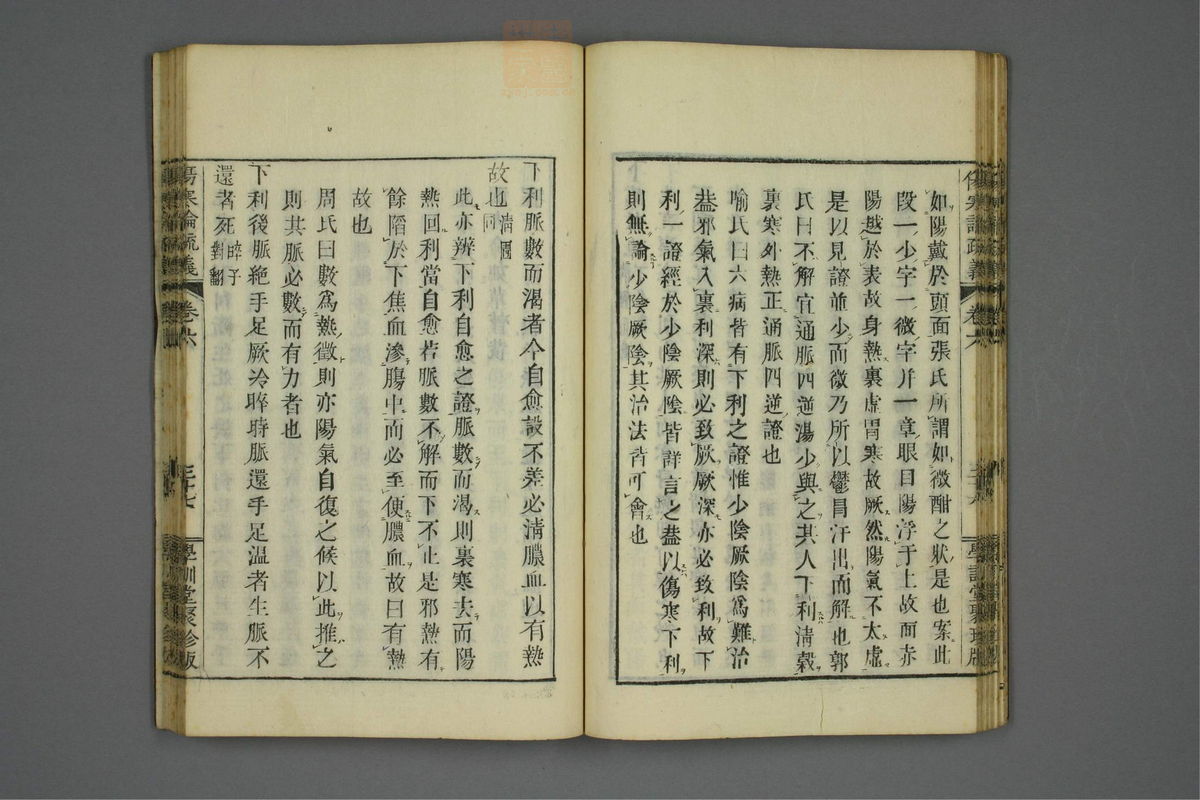 如陽戴於頭面張氏所謂如微酣之狀是也案此
段一少字一微字幷一章眼目陽浮于上故面赤
陽越於表故身熱裏虛胃寒故厥然陽氣不太虛
是以見證並少而微乃所以鬱冒汗出而解也郭
氏曰不解宜通脈四逆湯少與之其人下利淸穀
裏寒外熱正通脈四逆證也
喻氏曰六病皆有下利之證惟少陰厥陰爲難治
葢邪氣入裏利深則必致厥厥深亦必致利故下
利一證經於少陰厥陰皆詳言之葢以傷寒下利
則無論少陰厥陰其治法皆可會也
下利脈數而渴者今自愈設不差必淸膿血以有熱
故也淸圊同
此亦辨下利自愈之證脈數而渴則裏寒去而陽
熱回利當自愈若脈數不解而下不止是邪熱有
餘陷於下焦血滲腸中而必至便膿血故曰有熱
故也
周氏曰數爲熱徵則亦陽氣自復之候以此推之
則其脈必數而有力者也
下利後脈絕手足厥冷晬時脈還手足溫者生脈不
還者死晬子對翻
傷寒論疏義
卷六
學訓堂聚珍版